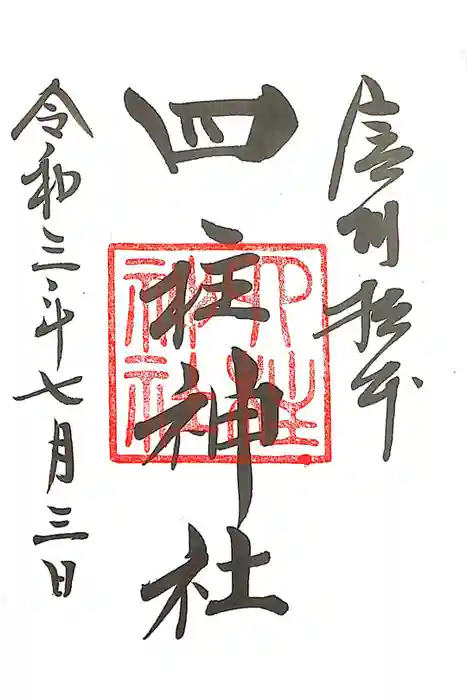 信州松本
四柱神社
四柱神社
令和三年七月三日